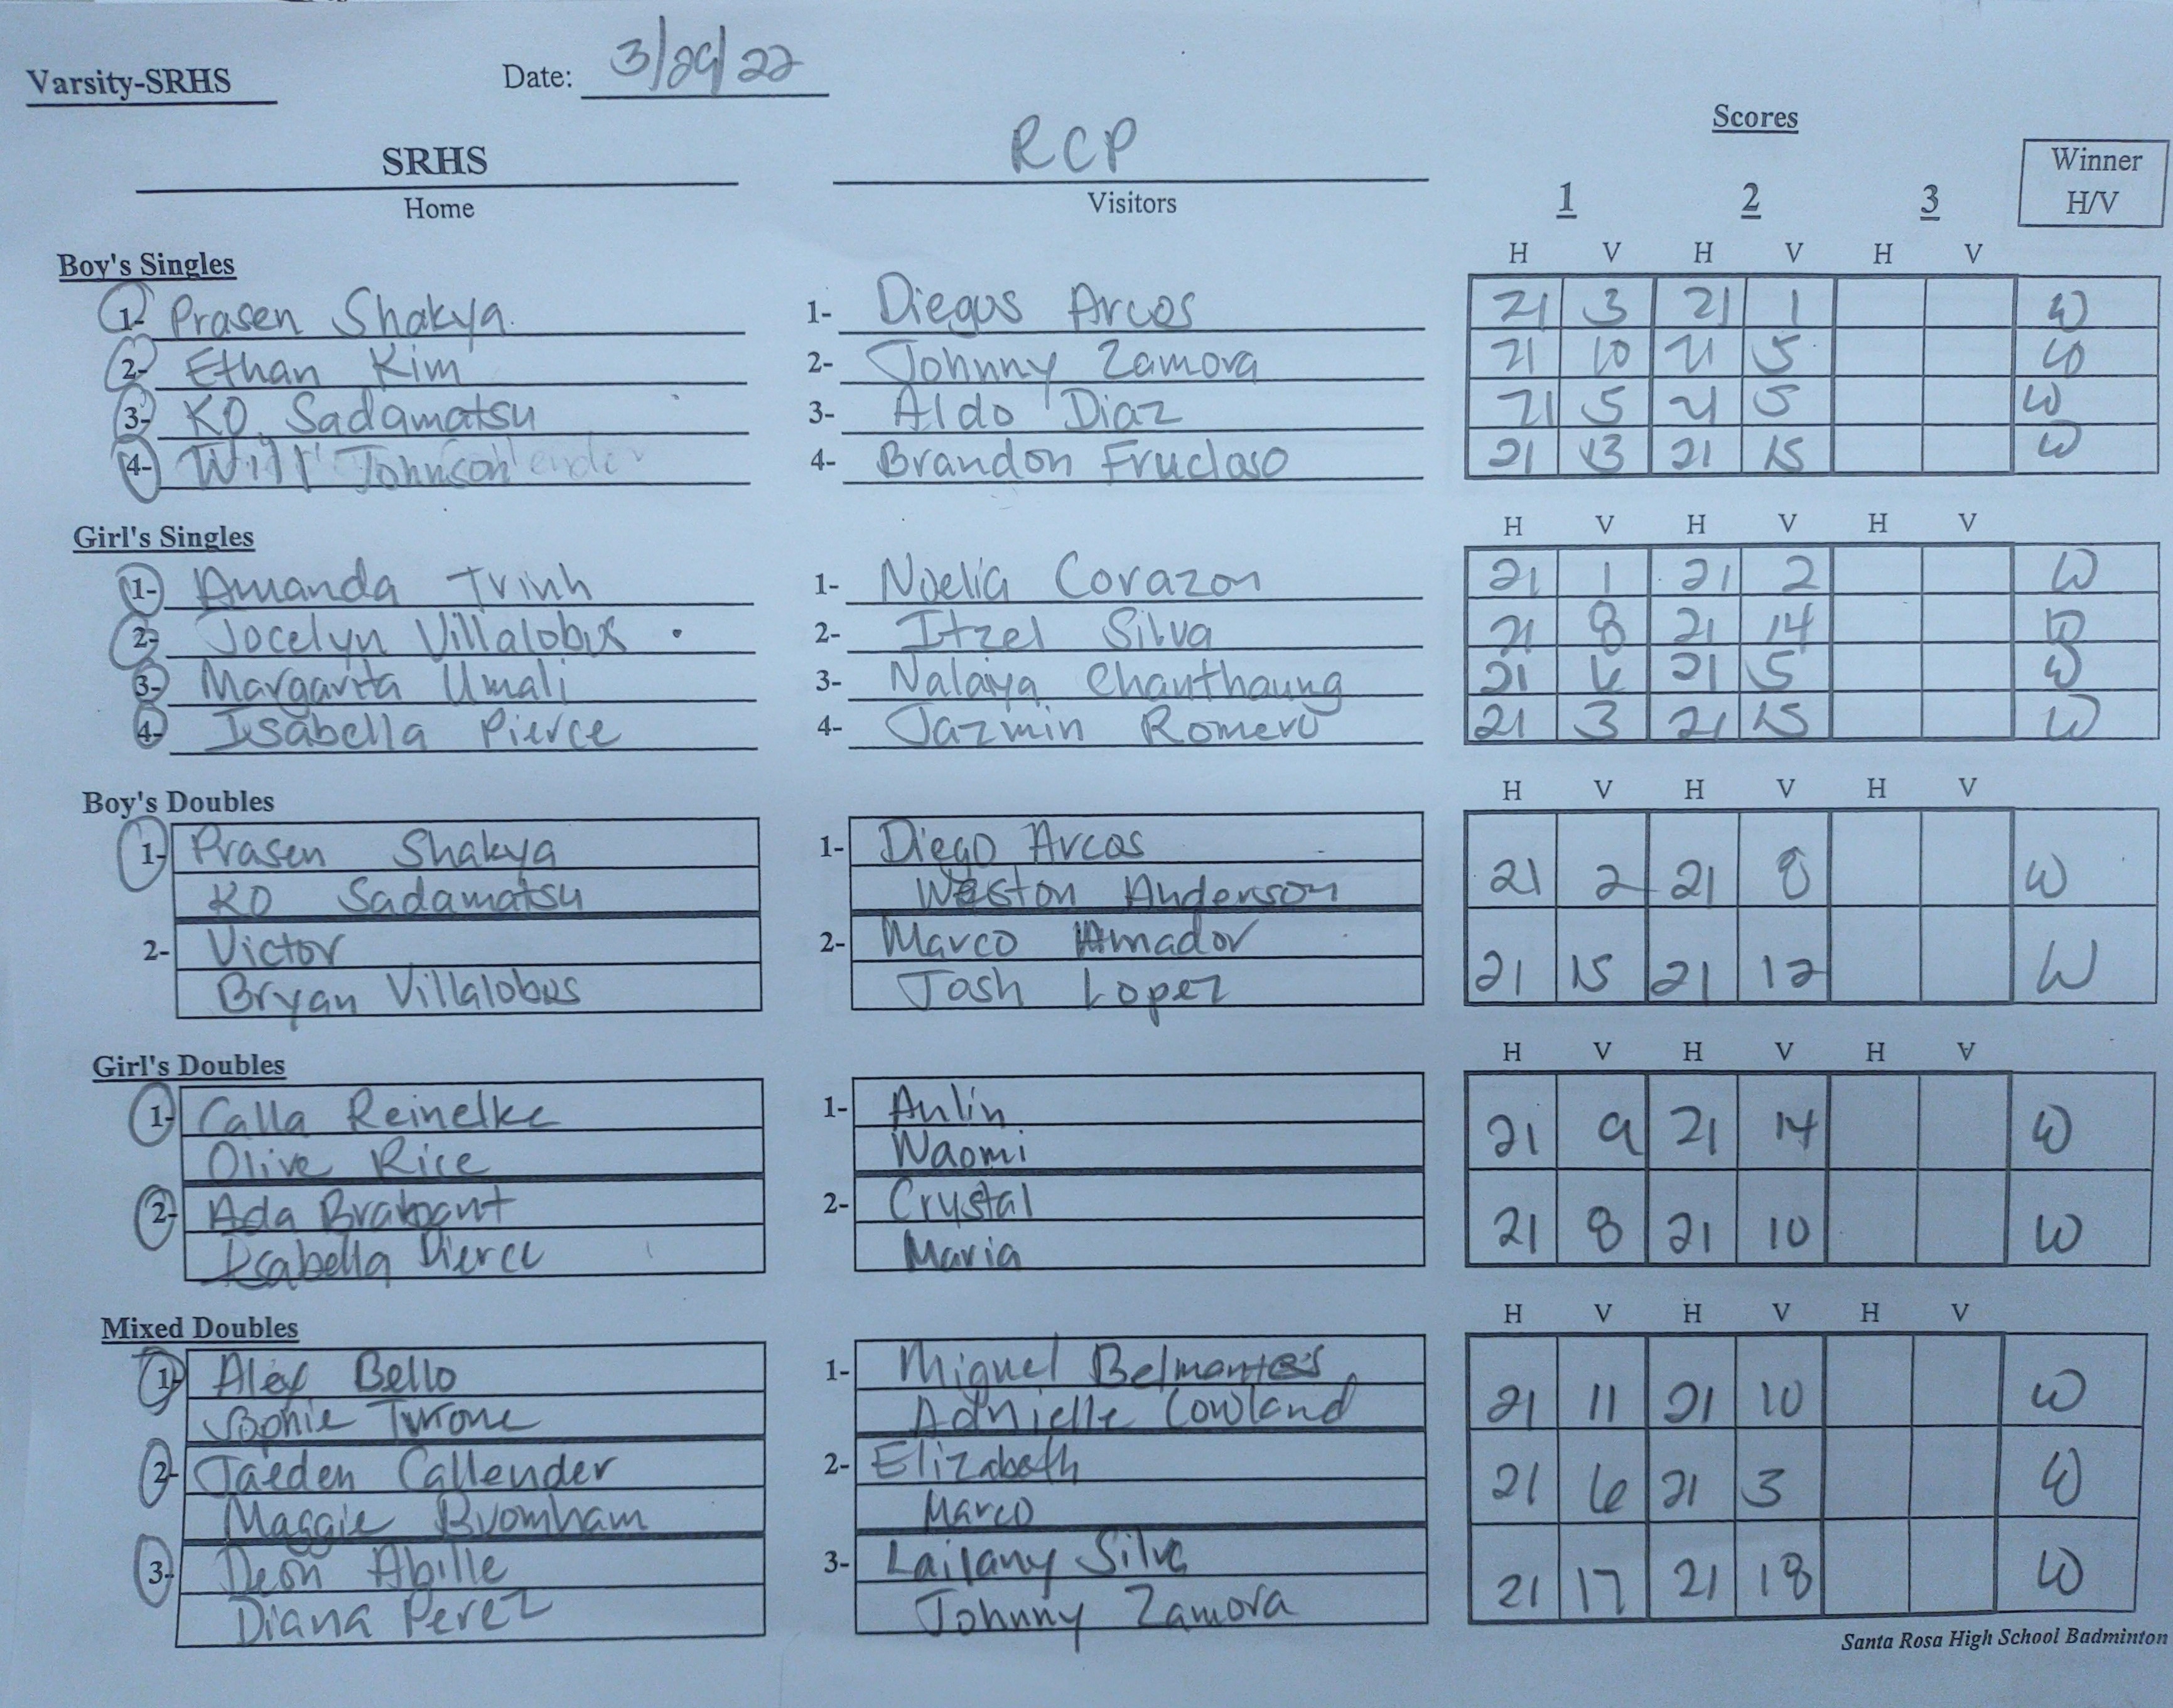 Varsity-SRHS Date: 3/29/22
Scores
SRHS RCP Winner
Home Visitors 1 2 3 H/V
Boy's Singles H V H V H V
1- Prasen Shakya 1- Diegus Arcos 21 3 21 1 W
2- Ethan Kim 2- Johnny Zamora 21 10 21 5 W
3- KO Sadamatsu 3- Aldo Diaz 21 5 21 5 W
4- Will Johnson 4- Brandon Fructoso 21 13 21 15 W
Girl's Singles H V H V H V
1- Amanda Trinh 1- Noelia Corazon 21 1 21 2 W
2- Jocelyn Villalobos 2- Itzel Silva 21 8 21 14 W
3- Margarita Umali 3- Nalaiya Chanthaung 21 6 21 5 W
4- Isabella Pierce 4- Jazmin Romero 21 3 21 15 W
Boy's Doubles H V H V H V
1- Prasen Shakya 1- Diego Arcos 21 2 21 8 W
KO Sadamatsu Weston Anderson
2- Victor 2- Marco Amador 21 15 21 12 W
Bryan Villalobos Josh Lopez
Girl's Doubles H V H V H V
1- Calla Reinelke 1- Anlin 21 9 21 14 W
Olive Rice Waomi
2- Ada Brabant 2- Crystal 21 8 21 10 W
Isabella Pierce Maria
Mixed Doubles H V H V H V
1- Alex Bello 1- Miguel Belmontes 21 11 21 10 W
Sophie Tyrone Adnielle Cowland
2- Jaeden Callender 2- Elizabeth 21 6 21 3 W
Maggie Bromham Marco
3- Deon Abille 3- Lailany Silva 21 17 21 18 W
Diana Perez Johnny Zamora
Santa Rosa High School Badminton